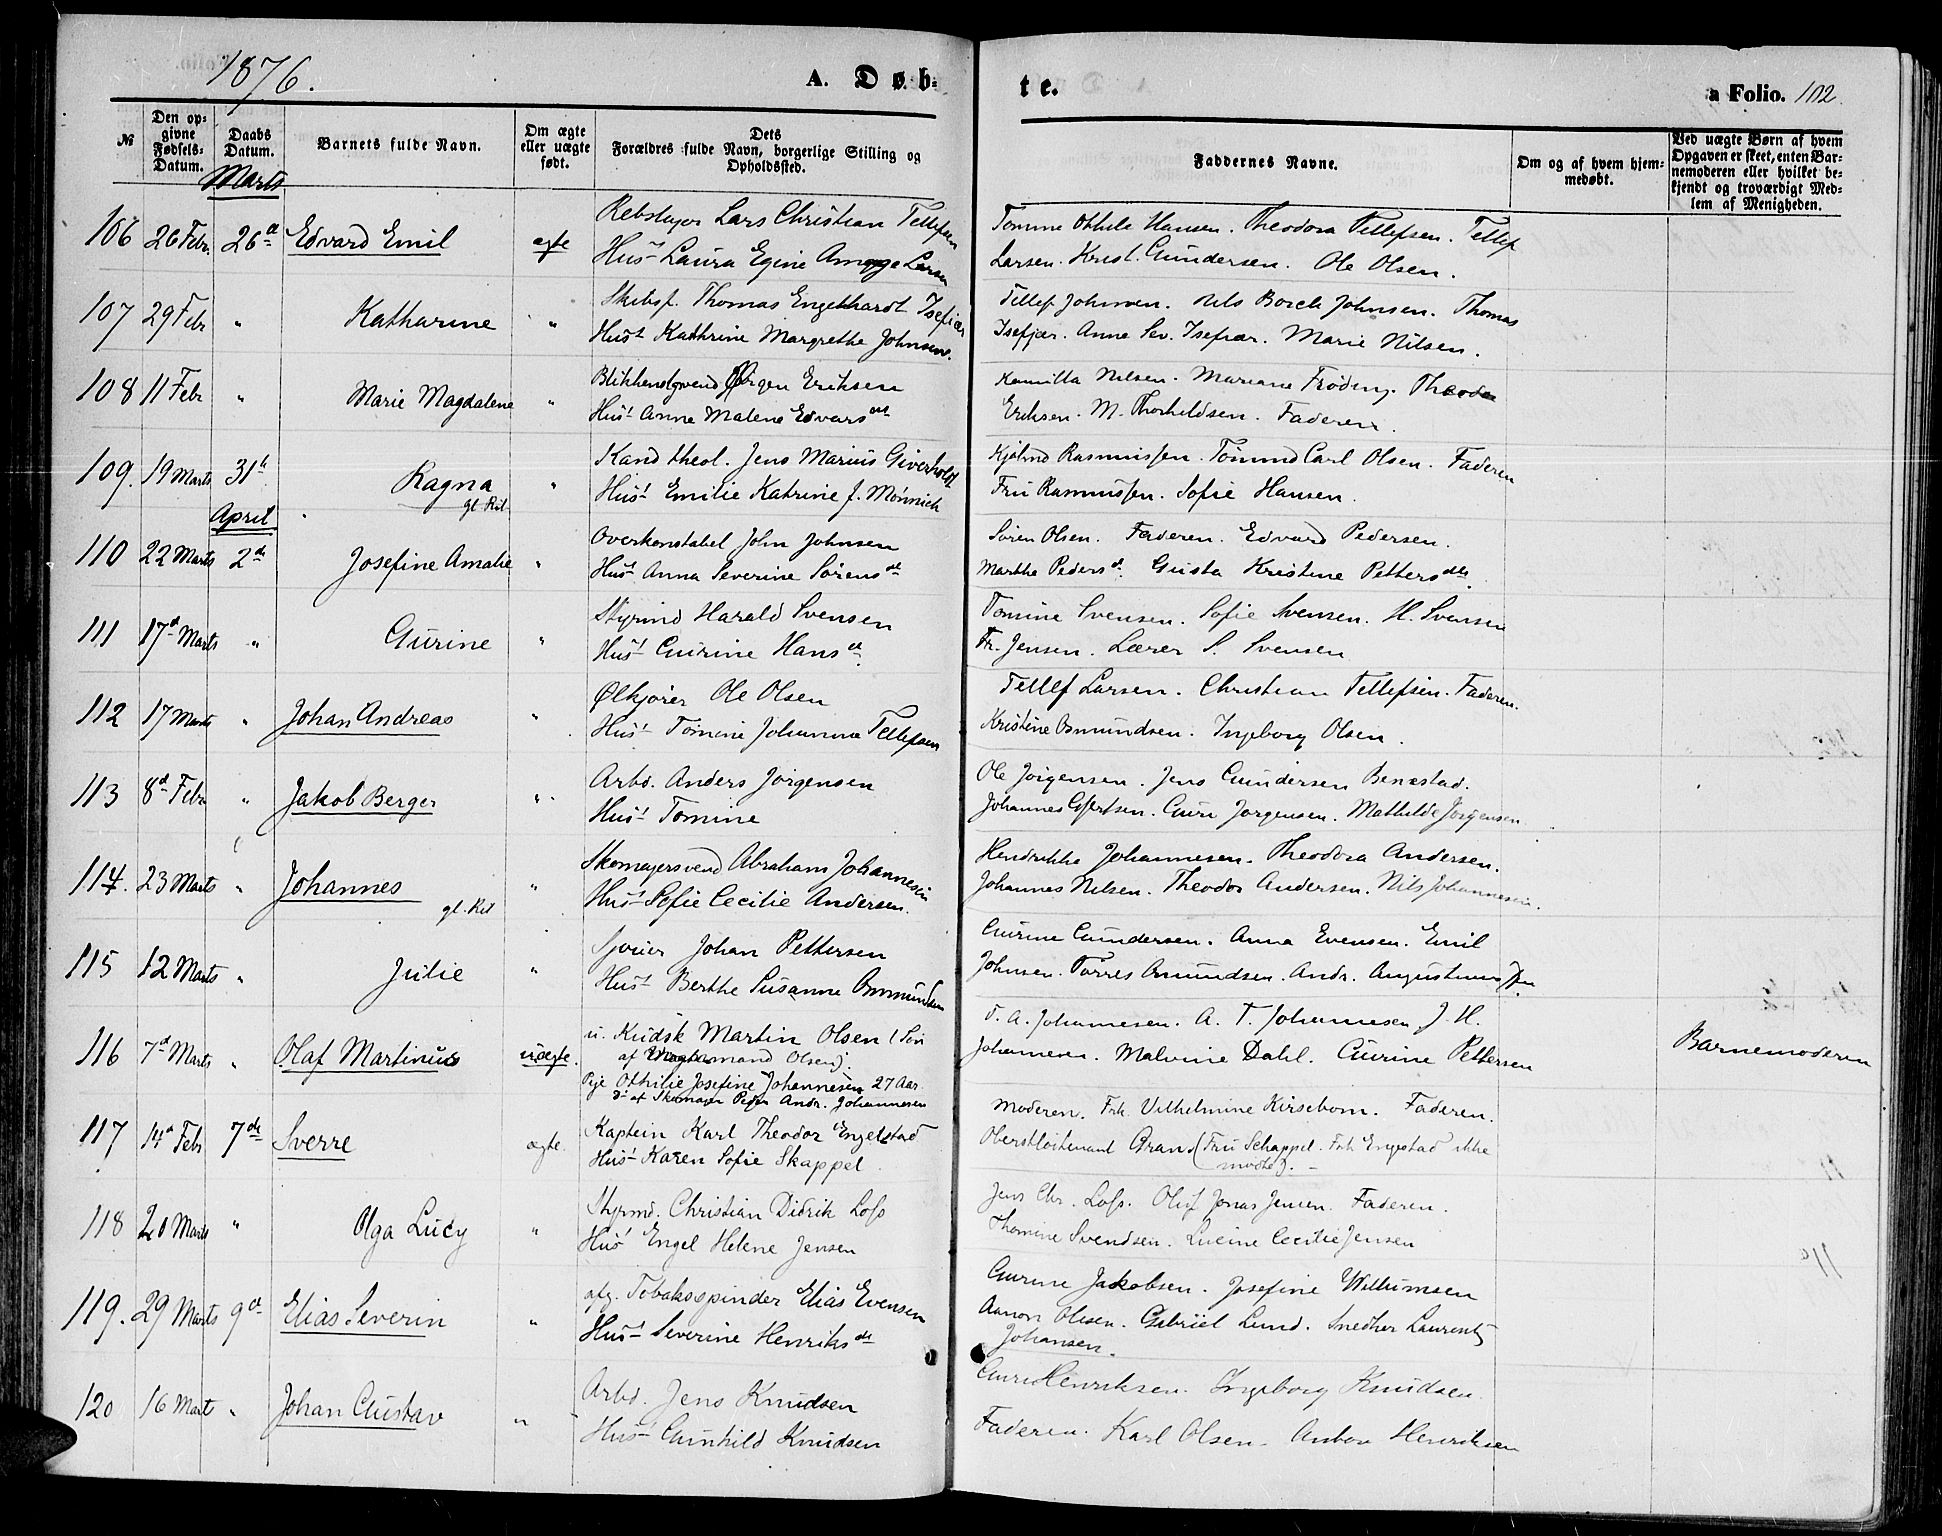 1876.
A. Døb-
te.
a Folio. 102.
№
Den op-
givne
Fødsels-
Datum.
Daabs
Datum.
Barnets fulde Navn.
Om ægte
eller uægte
født.
Dets
Forældres fulde Navn, borgerlige Stilling og
Opholdssted.
Faddernes Navne.
Om og af hvem hjem-
medøbt.
Ved uægte Børn af hvem
Opgaven er skeet, enten Bar-
nemoderen eller hvilket be-
kjendt og troværdigt Med-
lem af Menigheden.
Marts
106 26 Febr. 26de Edvard Emil ægte
Rebslager Lars Christian Tellefsen
Hust Laura Egine Larsen
Tomine Othile Hansen. Theodora Tellefsen. Tellef
Larsen. Krist. Gundersen. Ole Olsen.
107 29 Febr " Katharine "
Skibsf. Thomas Engelhardt Isefiær
Hust Kathrine Margrethe Johnsen.
Tellef Johnsen. Nils Borch Johnsen. Thomas
Isefjær. Anne Sev. Isefiær. Marie Nilsen.
108 11 Febr " Marie Magdalene "
Jørgen Eriksen
Hust Anne Malene Edvardsdt
Kamilla Nilsen. Mariane Frøding. Theodor
Eriksen. M. Thorkildsen. Faderen.
109. 19 Marts 31te Ragna "
gl. Rit.
Kand theol. Jens Marius Giverholt
Hust Emilie Katrine f. Mønnich
Hjalmd Rasmussen. Tømmd Carl Olsen. Faderen
Fru Rasmussen. Sofie Hansen.
April
110 22 Marts 2den Josefine Amalie "
Overkonstabel John Johnsen
Hust Anna Severine Sørensdt
Søren Olsen. Faderen. Edvard Pedersen.
Marthe Pedersdt. Gusta Kristine Pettersdtr.
111 17de Marts " Gurine "
Styrmd Harald Svensen
Hust Gurine Hansdt.
Tomine Svensen. Sofie Svensen. H. Svensen
Fr. Jensen. Lærer S. Svensen
112 17 Marts " Johan Andreas "
Ølkjører Ole Olsen
Hust Tomine Johanna Tellefsen
Tellef Larsen. Christian Tellefsen. Faderen.
Kristine Osmundsen. Ingeborg Olsen.
113 8de Febr " Jakob Berger "
Arbd. Anders Jørgensen
Hust Tomine
Ole Jørgensen. Jens Gundersen Benestad.
Johannes . Guri Jørgensen. Mathilde Jørgensen.
114. 23 Marts " Johannes "
gl. Rit
Skomagersvend Abraham Johannesen
Hust Sofie Cecilie Andersen.
Hendrikke Johannesen. Theodora Andersen.
Johannes Nilsen. Theodor Andersen. Nils Johannesen.
115 12 Marts " Julie "
Sjouer Johan Pettersen
Hust Berthe Susanne Osmundsen
Gurine Gundersen. Anna Evensen. Emil
Johnsen. Torres Osmundsen. Andr. Augustinussen.
116 7de Marts " Olaf Martinus uægte.
u. Kudsk Martin Olsen (Søn
af Olsen).
Pige Othilie Josefine Johannesen 27 Aar.
Dt af Skomager Peder Andr. Johannesen
T. A. Johannesen. A. T. Johannesen J. H.
Johannesen. Malvine Dahl. Gurine Pettersen
Barnemoderen
117 14de Febr 7de Sverre ægte.
Kaptein Karl Theodor Engelstad
Hust Karen Sofie Skappel.
Moderen. Frk. Vilhelmine Kirsebom. Faderen.
Oberstløitenant Grand (Fru Schappel. Frk Engestad ikke
mødte). -
118 20 Marts " Olga Lucy "
Styrmd. Christian Didrik Loss
Hust Engel Helene Jensen
Jens Chr. Loss. Oluf Jonas Jensen. Faderen.
Thomine Svendsen. Lucine Cecilie Jensen
119. 29 Marts 9de Elias Severin "
afg. Tobaksspinder Elias Evensen
Hust Severine Henriksdt
Gurine Jakobsen. Josefine Willumsen
Aanon Olsen. Gabriel Lund. Snedker Laurents
Johansen.
120 16 Marts " Johan Gustav "
Arbd. Jens Knudsen
Hust Gunhild Knudsen
Guri Henriksen. Ingeborg Knudsen.
Faderen. Karl Olsen. Anton Henriksen